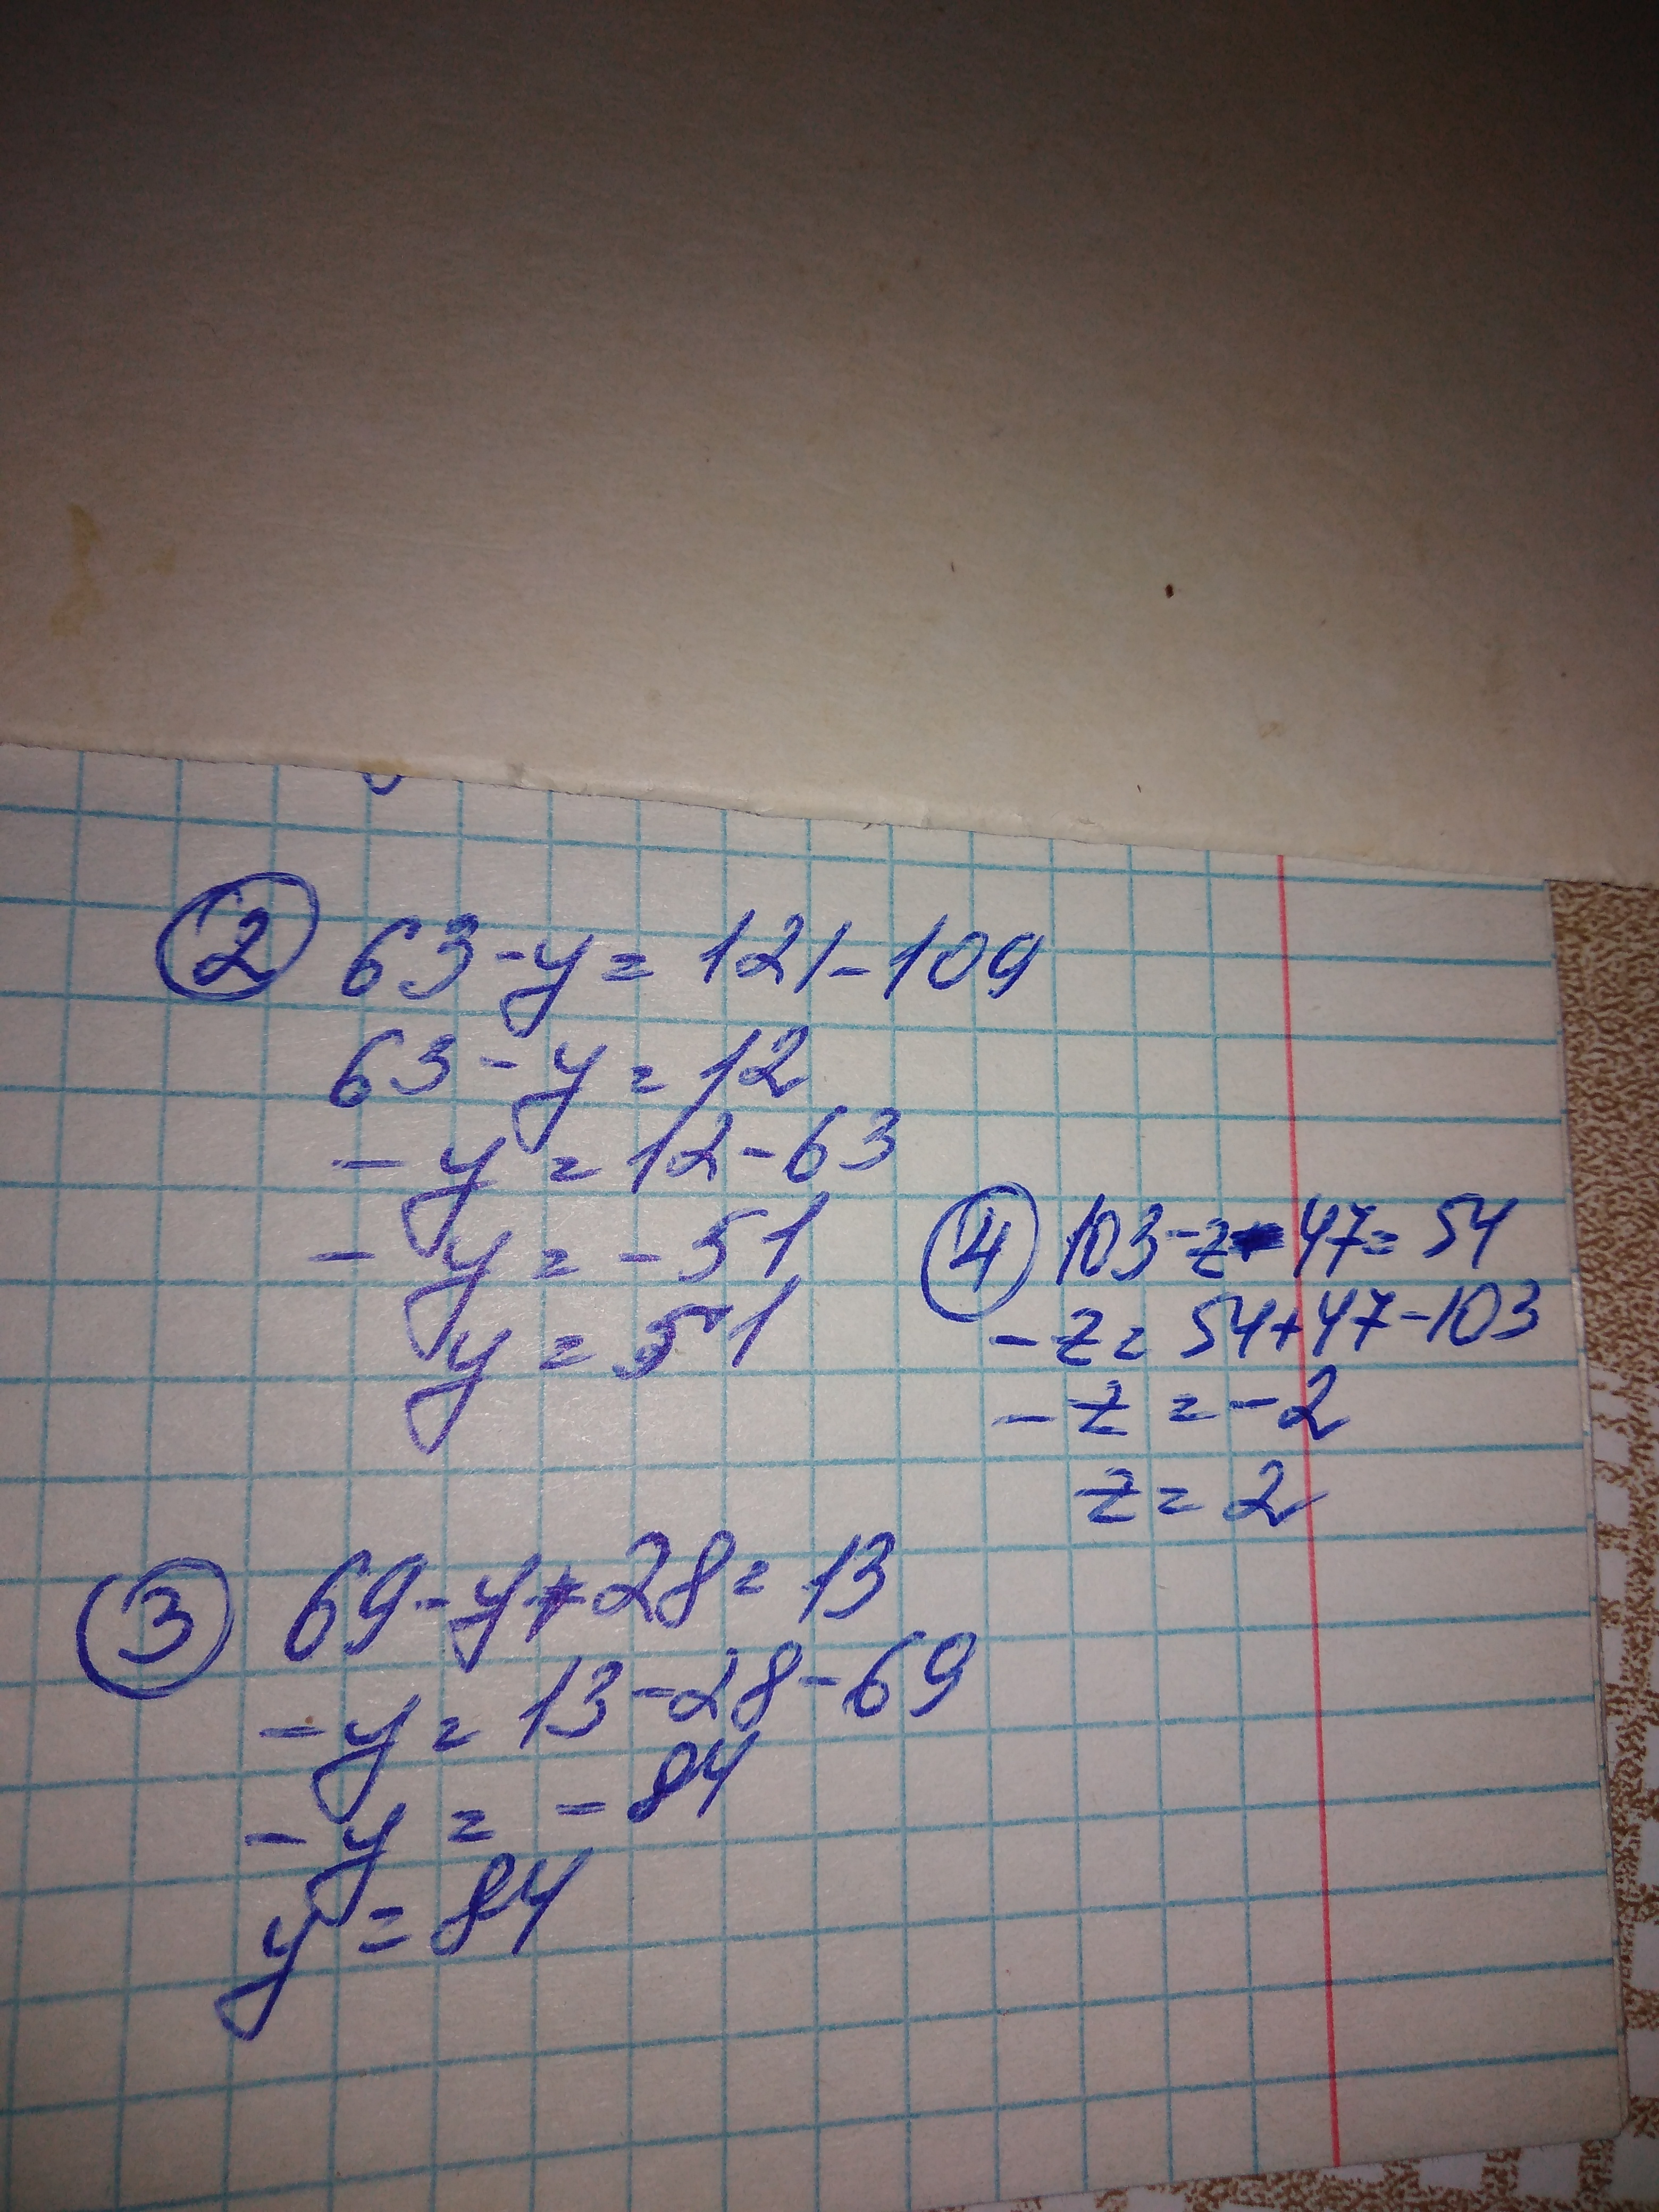 ② 63-y=121-109
63-y=12
-y=12-63
-y=-51
y=51
③ 69-y+28=13
-y=13-28-69
-y=-84
y=84
④ 103-z-47=54
-z=54+47-103
-z=-2
z=2